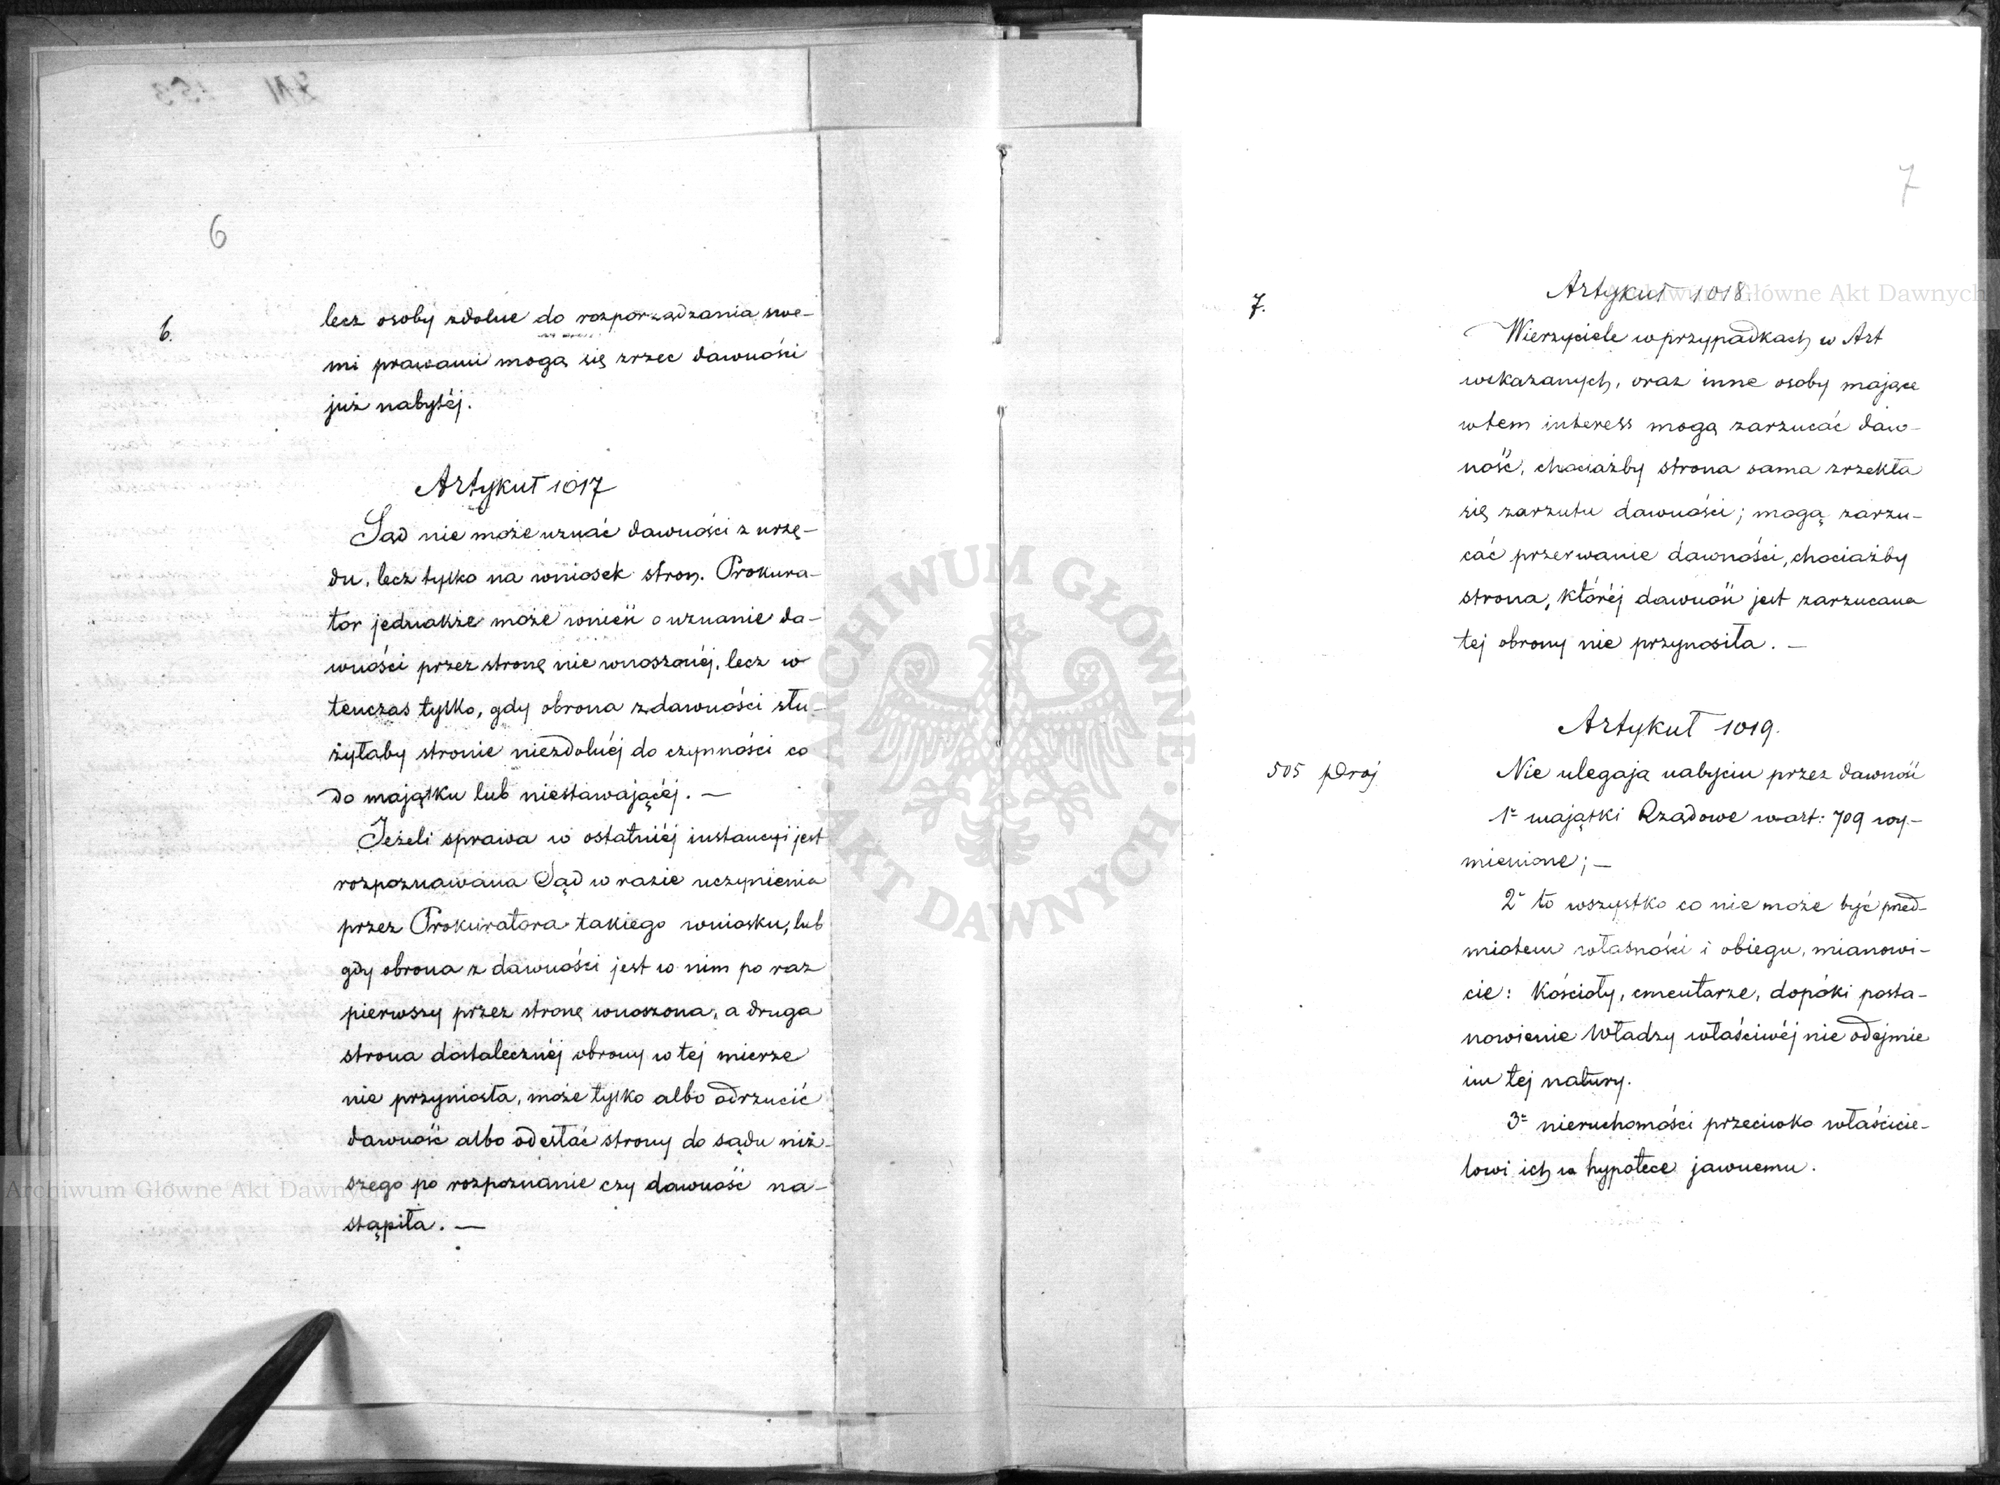 6
6.
lecz osoby zdolne do rozporządzania swe-
mi prawami mogą się zrzec dawności
już nabytéj.
Artykuł 1017
Sąd nie może uznać dawności z urzę-
du, lecz tylko na wniosek stron. Prokura-
tor jednakże może wnieść o uznanie da-
wności przez stronę nie wnoszonéj, lecz w
tenczas tylko, gdy obrona z dawności słu-
żyłaby stronie niezdolnéj do czynności co
do majątku lub niestawającéj. —
Jeżeli sprawa w ostatniéj instancyi jest
rozpoznawana Sąd w razie uczynienia
przez Prokuratora takiego wniosku, lub
gdy obrona z dawności jest w nim po raz
pierwszy przez stronę wnoszona, a druga
strona dostatecznéj obrony w tej mierze
nie przyniosła, może tylko albo odrzucić
dawność albo odesłać strony do sądu niż-
szego po rozpoznanie czy dawność na-
stąpiła. —
7
7.
Artykuł 1018
Wierzyciele w przypadkach w Art
wskazanych, oraz inne osoby mające
w tem interess mogą zarzucać daw-
ność, chociażby strona sama zrzekła
się zarzutu dawności; mogą zarzu-
cać przerwanie dawności, chociażby
strona, któréj dawność jest zarzucana
tej obrony nie przynosiła. —
Artykuł 1019.
505 pDroj
Nie ulegają nabyciu przez dawność
1º majątki Rządowe w art: 709 wy-
mienione; —
2º to wszystko co nie może być pred-
miotem własności i obiegu, mianowi-
cie: Kościoły, cmentarze, dopóki posta-
nowienie Władzy właściwéj nie odejmie
im tej natury.
3º nieruchomości przeciwko właścicie-
lowi ich w hypotece jawnemu.
ARCHIWUM GŁÓWNE AKT DAWNYCH
Archiwum Główne Akt Dawnych
Archiwum Główne Akt Dawnych